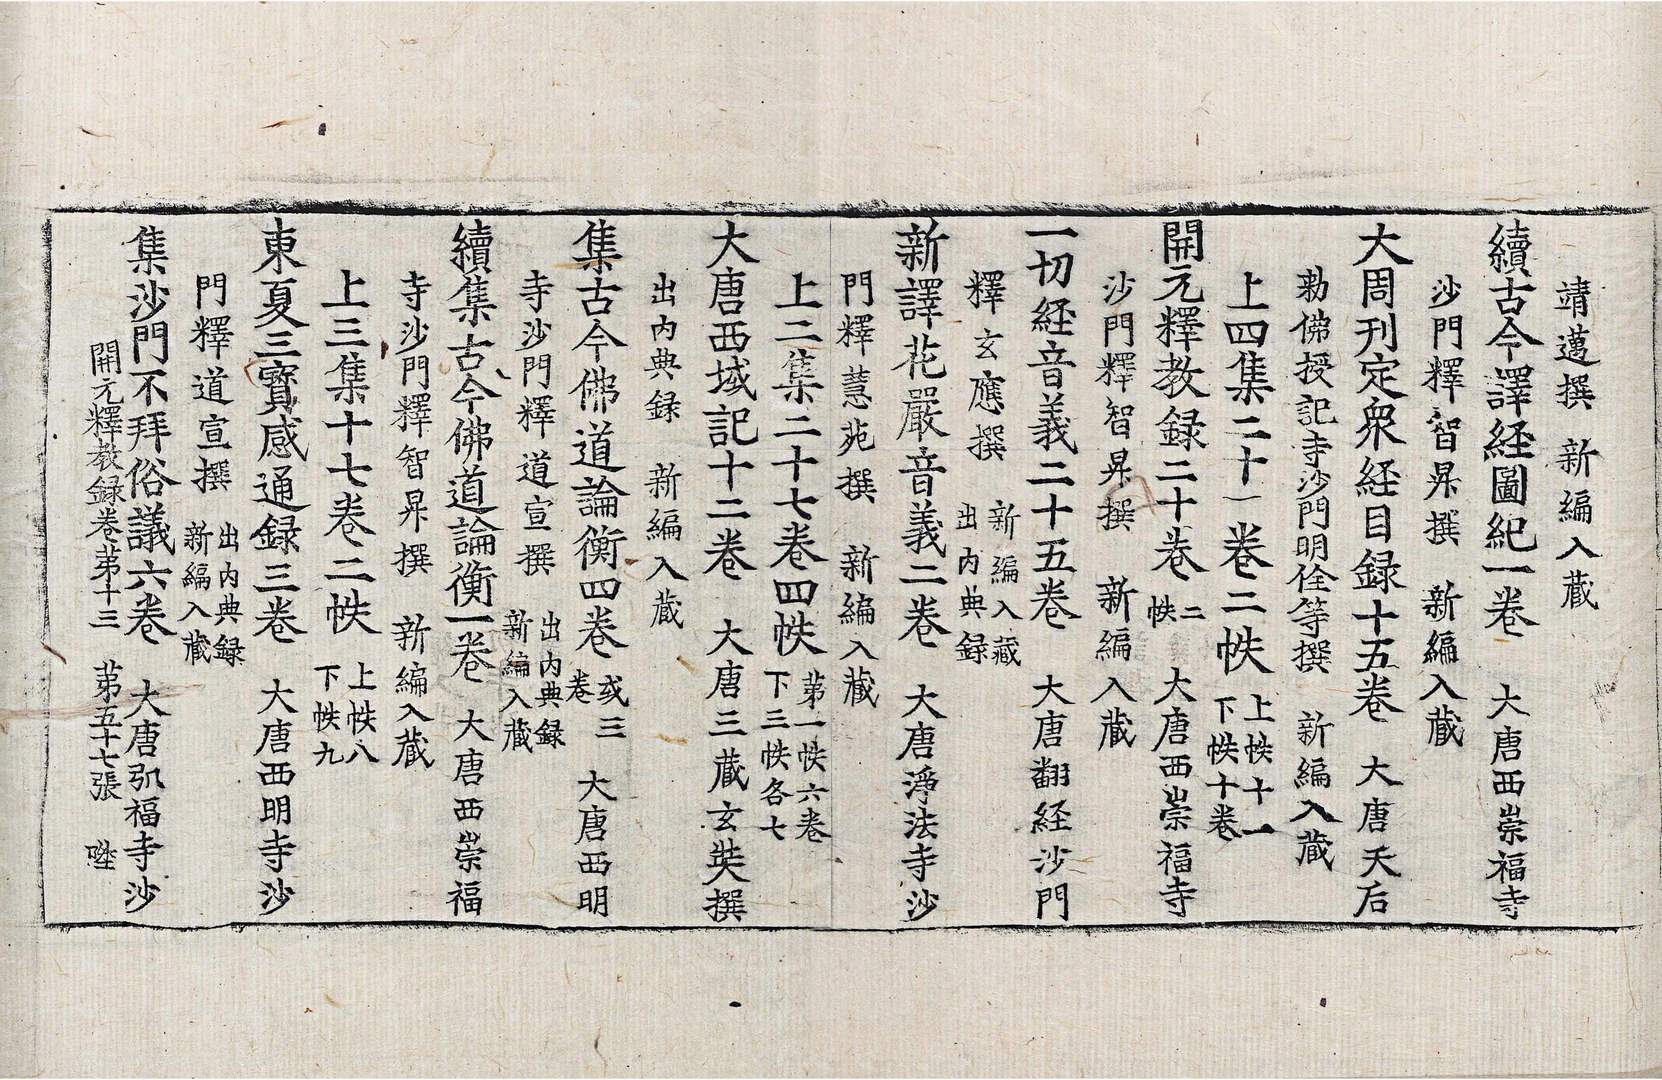 靖邁撰 新編入蔵
續古今譯経圖紀一卷 大唐西崇福寺
沙門釋智昇撰 新編入蔵
大周刊定衆経目録十五卷 大唐天后
勑佛授記寺沙門明佺等撰 新編入蔵
上四集二十一卷二帙 上帙十一
下帙十卷
開元釋教録二十卷 二
帙 大唐西崇福寺
沙門釋智昇撰 新編入蔵
一切経音義二十五卷 大唐翻経沙門
釋玄應撰 新編入蔵
出内典録
新譯花嚴音義二卷 大唐淨法寺沙
門釋慧苑撰 新編入蔵
上二集二十七卷四帙 第一帙六卷
下三帙各七
大唐西域記十二卷 大唐三蔵玄奘撰
出内典録 新編入蔵
集古今佛道論衡四卷 或三
卷 大唐西明
寺沙門釋道宣撰 出内典録
新編入蔵
續集古今佛道論衡一卷 大唐西崇福
寺沙門釋智昇撰 新編入蔵
上三集十七卷二帙 上帙八
下帙九
東夏三寳感通録三卷 大唐西明寺沙
門釋道宣撰 出内典録
新編入蔵
集沙門不拜俗議六卷 大唐弘福寺沙
開元釋教録卷第十三 第五十七張